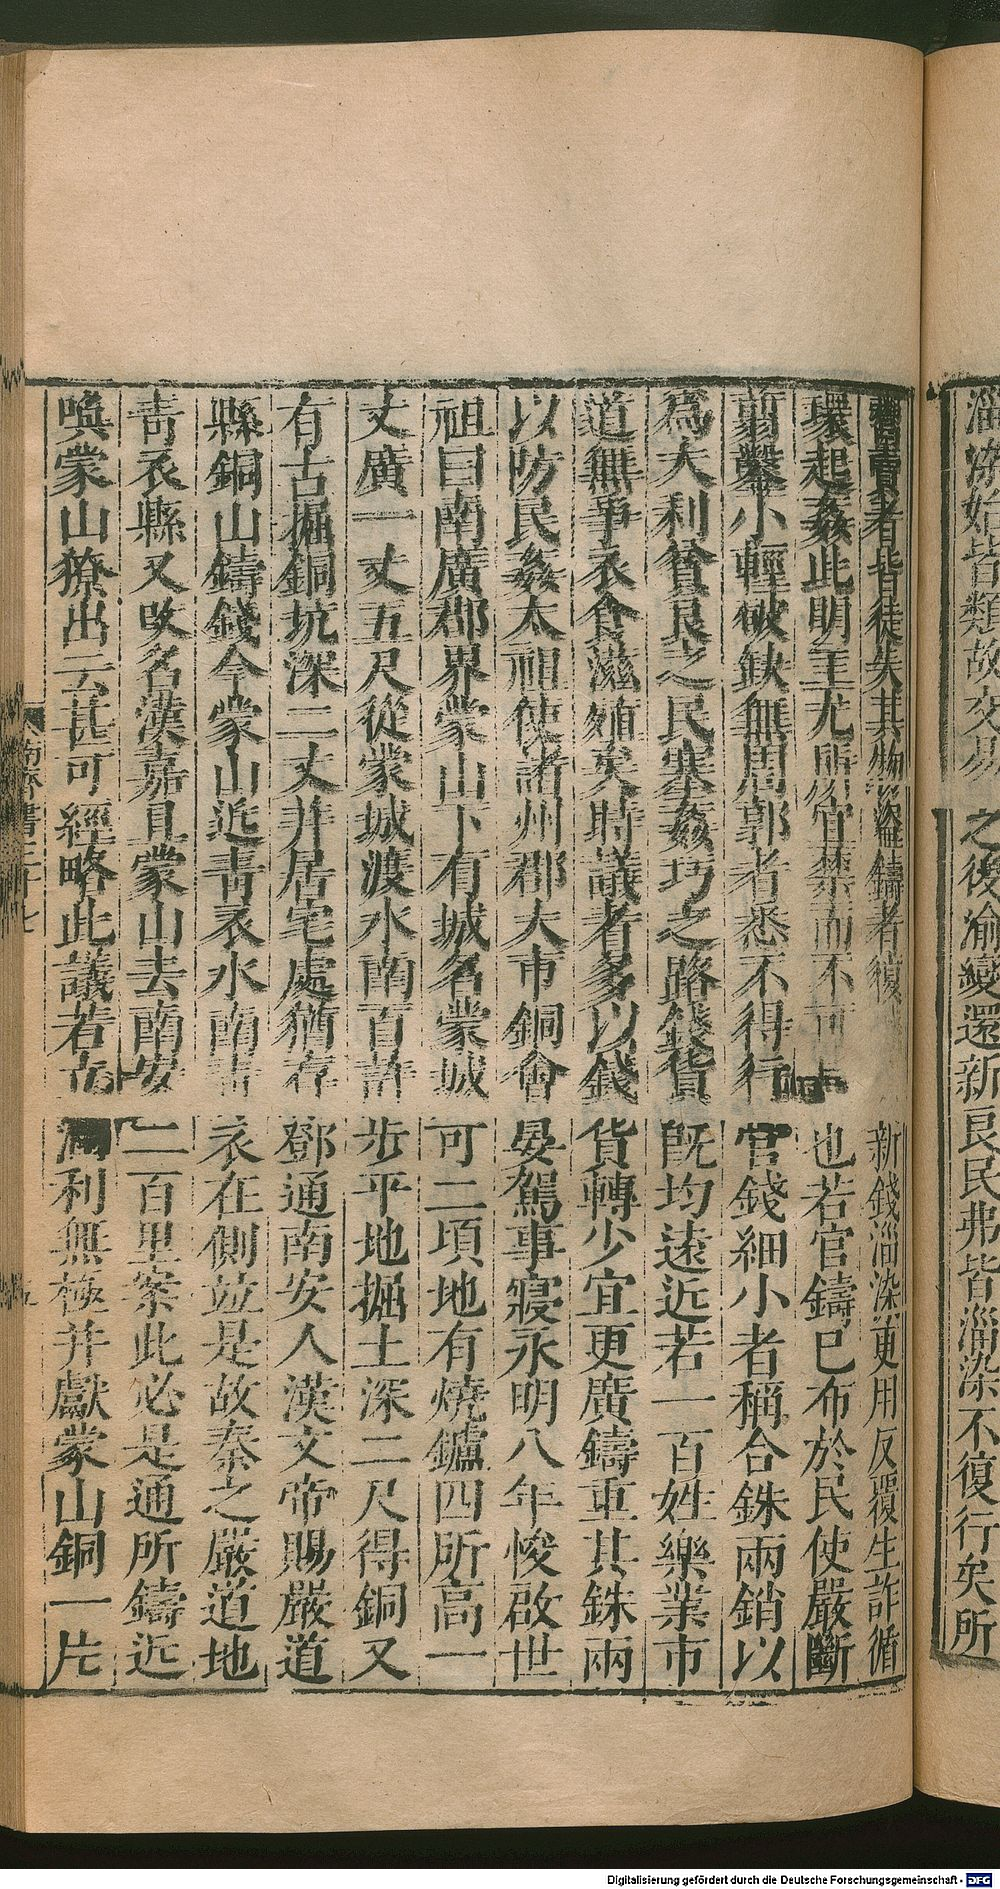 淄染始皆類故交易之後渝變還新良民弗皆淄染不復行矣所
鬻賣者皆徒失其物盜鑄者復賤買新錢淄染更用反覆生詐循
環起姦此明主尤所宜禁而不可長也若官鑄已布於民使嚴斷
翦鑿小輕破缺無周郭者悉不得行官錢細小者稱合銖兩銷以
爲大利貧良之民塞姦巧之路錢貨旣均遠近若一百姓樂業市
道無爭衣食滋殖矣時議者多以錢貨轉少宜更廣鑄重其銖兩
以防民姦太祖使諸州郡大市銅會晏駕事寢永明八年悛啟世
祖曰南廣郡界蒙山下有城名蒙城可二頃地有燒鑪四所高一
丈廣一丈五尺從蒙城渡水南百許步平地掘土深二尺得銅又
有古掘銅坑深二丈并居宅處猶存鄧通南安人漢文帝賜嚴道
縣銅山鑄錢今蒙山近靑衣水南靑衣在側竝是故秦之嚴道地
靑衣縣又改名漢嘉且蒙山去南安二百里案此必是通所鑄近
喚蒙山獠出云甚可經略此議若立潤利無極并獻蒙山銅一片
南齊書三十七
五
Digitalisierung gefördert durch die Deutsche Forschungsgemeinschaft - DFG